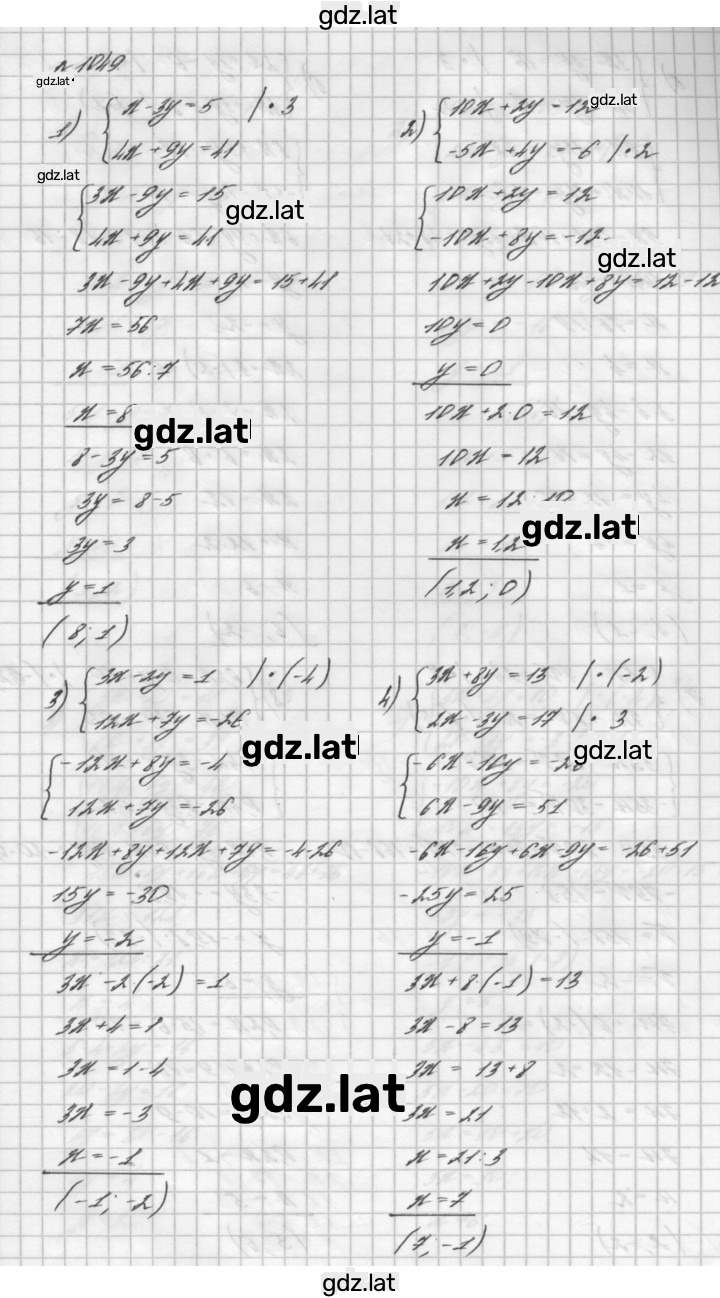 gdz.lat
№ 1049.
gdz.lat
1) { x - 3y = 5 | · 3
4x + 9y = 41
gdz.lat
{ 3x - 9y = 15
4x + 9y = 41
gdz.lat
3x - 9y + 4x + 9y = 15 + 41
7x = 56
x = 56 : 7
x = 8
gdz.lat
8 - 3y = 5
3y = 8 - 5
3y = 3
y = 1
(8; 1)
2) { 10x + 2y = 12
gdz.lat
-5x + 4y = -6 | · 2
{ 10x + 2y = 12
-10x + 8y = -12
gdz.lat
10x + 2y - 10x + 8y = 12 - 12
10y = 0
y = 0
10x + 2 · 0 = 12
10x = 12
x = 12 : 10
gdz.lat
x = 1,2
(1,2; 0)
3) { 3x - 2y = 1 | · (-4)
12x + 7y = -26
gdz.lat
{ -12x + 8y = -4
12x + 7y = -26
-12x + 8y + 12x + 7y = -4 - 26
15y = -30
y = -2
3x - 2(-2) = 1
3x + 4 = 1
3x = 1 - 4
gdz.lat
3x = -3
x = -1
(-1; -2)
4) { 3x + 8y = 13 | · (-2)
2x - 3y = 17 | · 3
gdz.lat
{ -6x - 16y = -26
6x - 9y = 51
-6x - 16y + 6x - 9y = -26 + 51
-25y = 25
y = -1
3x + 8(-1) = 13
3x - 8 = 13
3x = 13 + 8
3x = 21
x = 21 : 3
x = 7
(7; -1)
gdz.lat